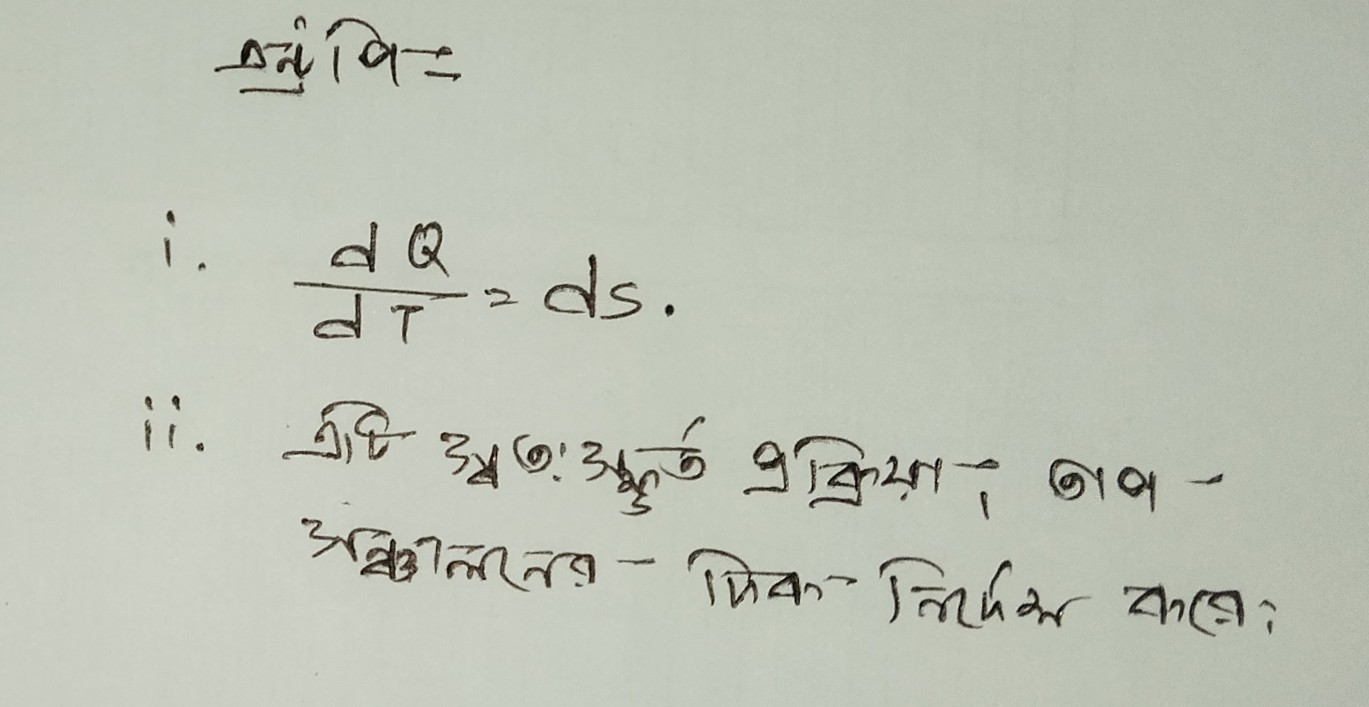 এনট্রপি:-
i. dQ/dT = ds.
ii. এটি স্বতঃস্ফূর্ত প্রক্রিয়া, তাপ -
সঞ্চালনের - দিক নির্দেশ করে।